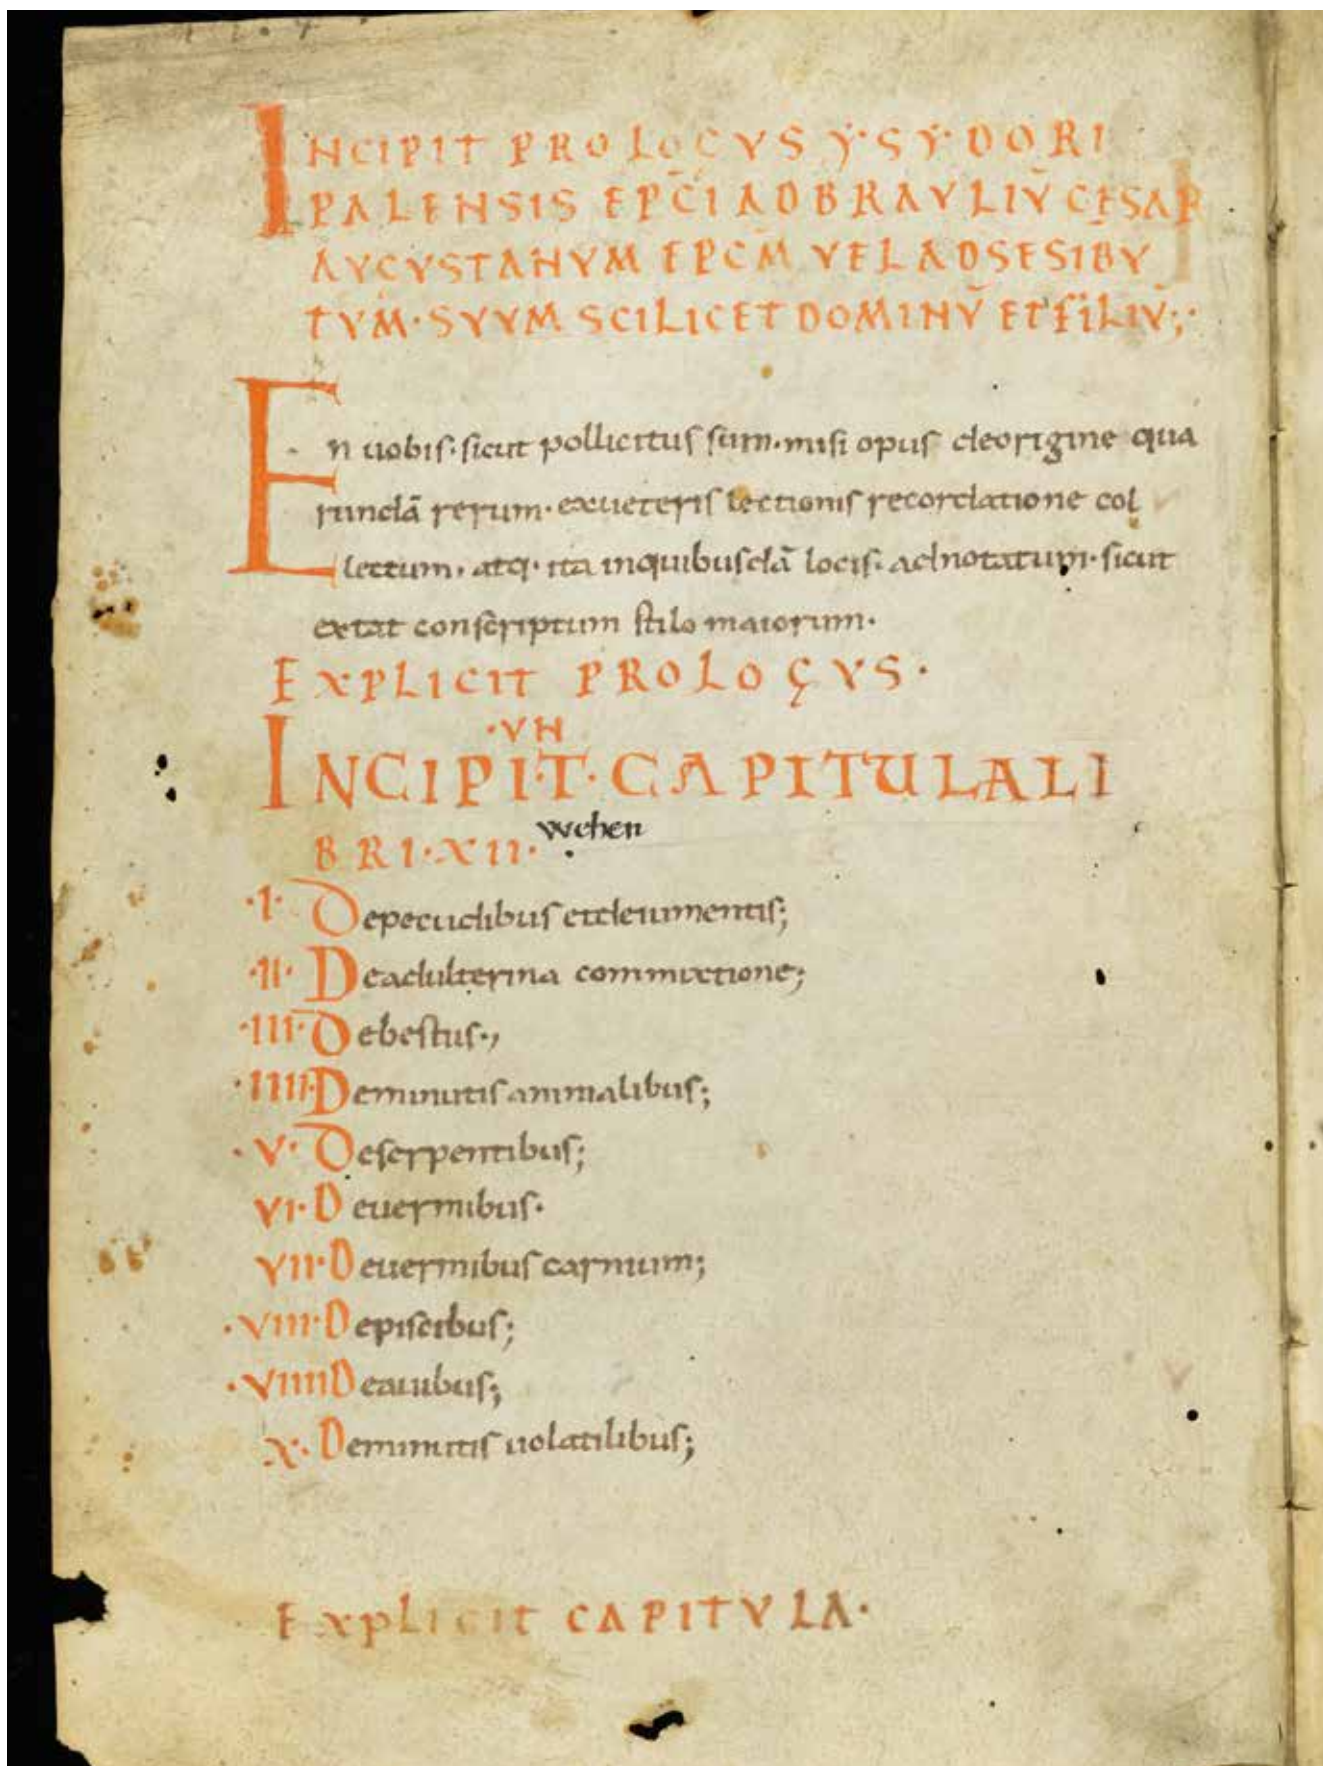 INCIPIT PROLOGVS Ẏ·SẎ·DORI
PALENSIS EPC̄I AD BRAVLIV̄ CESAR
AVGVSTANVM EPC̄M VEL AD SESIBV
TVM·SVVM SCILICET DOMINV̄ ET FILIV̄;·
En uobis·sicut pollicitus sum·misi opus deorigine qua
rundā rerum·exueteris lectionis recordatione col
lectum, atq· ita inquibusdā locis·adnotatum·sicut
extat conscriptum stilo maiorum·
EXPLICIT PROLOGVS·
·VN
INCIPI·T·CAPITULALI
wehen
BRI·XII·
·I· Depecudibus etdeiumentis;
·II· Deadulterina commixtione;
·III· Debestiis·,
·IIII· Deminutis animalibus;
·V· Deserpentibus;
VI· Deuermibus·
VII· Deuermibus carnium;
·VIII· Depiscibus;
·VIIII Deauibus;
X· Deminutis uolatilibus;
EXPLICIT CAPITVLA·